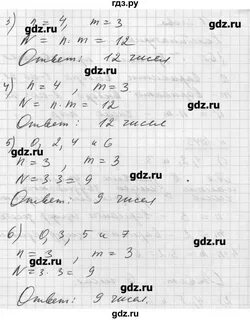 гдз.ру
3) n = 4, m = 3
N = n·m = 12
Ответ: 12 чисел
4) n = 4, m = 3
N = n·m = 12
Ответ: 12 чисел
5) 0, 2, 4 и 6
n = 3, m = 3
N = 3·3 = 9
Ответ: 9 чисел
6) 0, 3, 5 и 7
n = 3, m = 3
N = 3·3 = 9
Ответ: 9 чисел.
gdz.ru
gdz.ru
gdz.ru
gdz.ru
gdz.ru
gdz.ru
gdz.ru
gdz.ru
гдз.ру